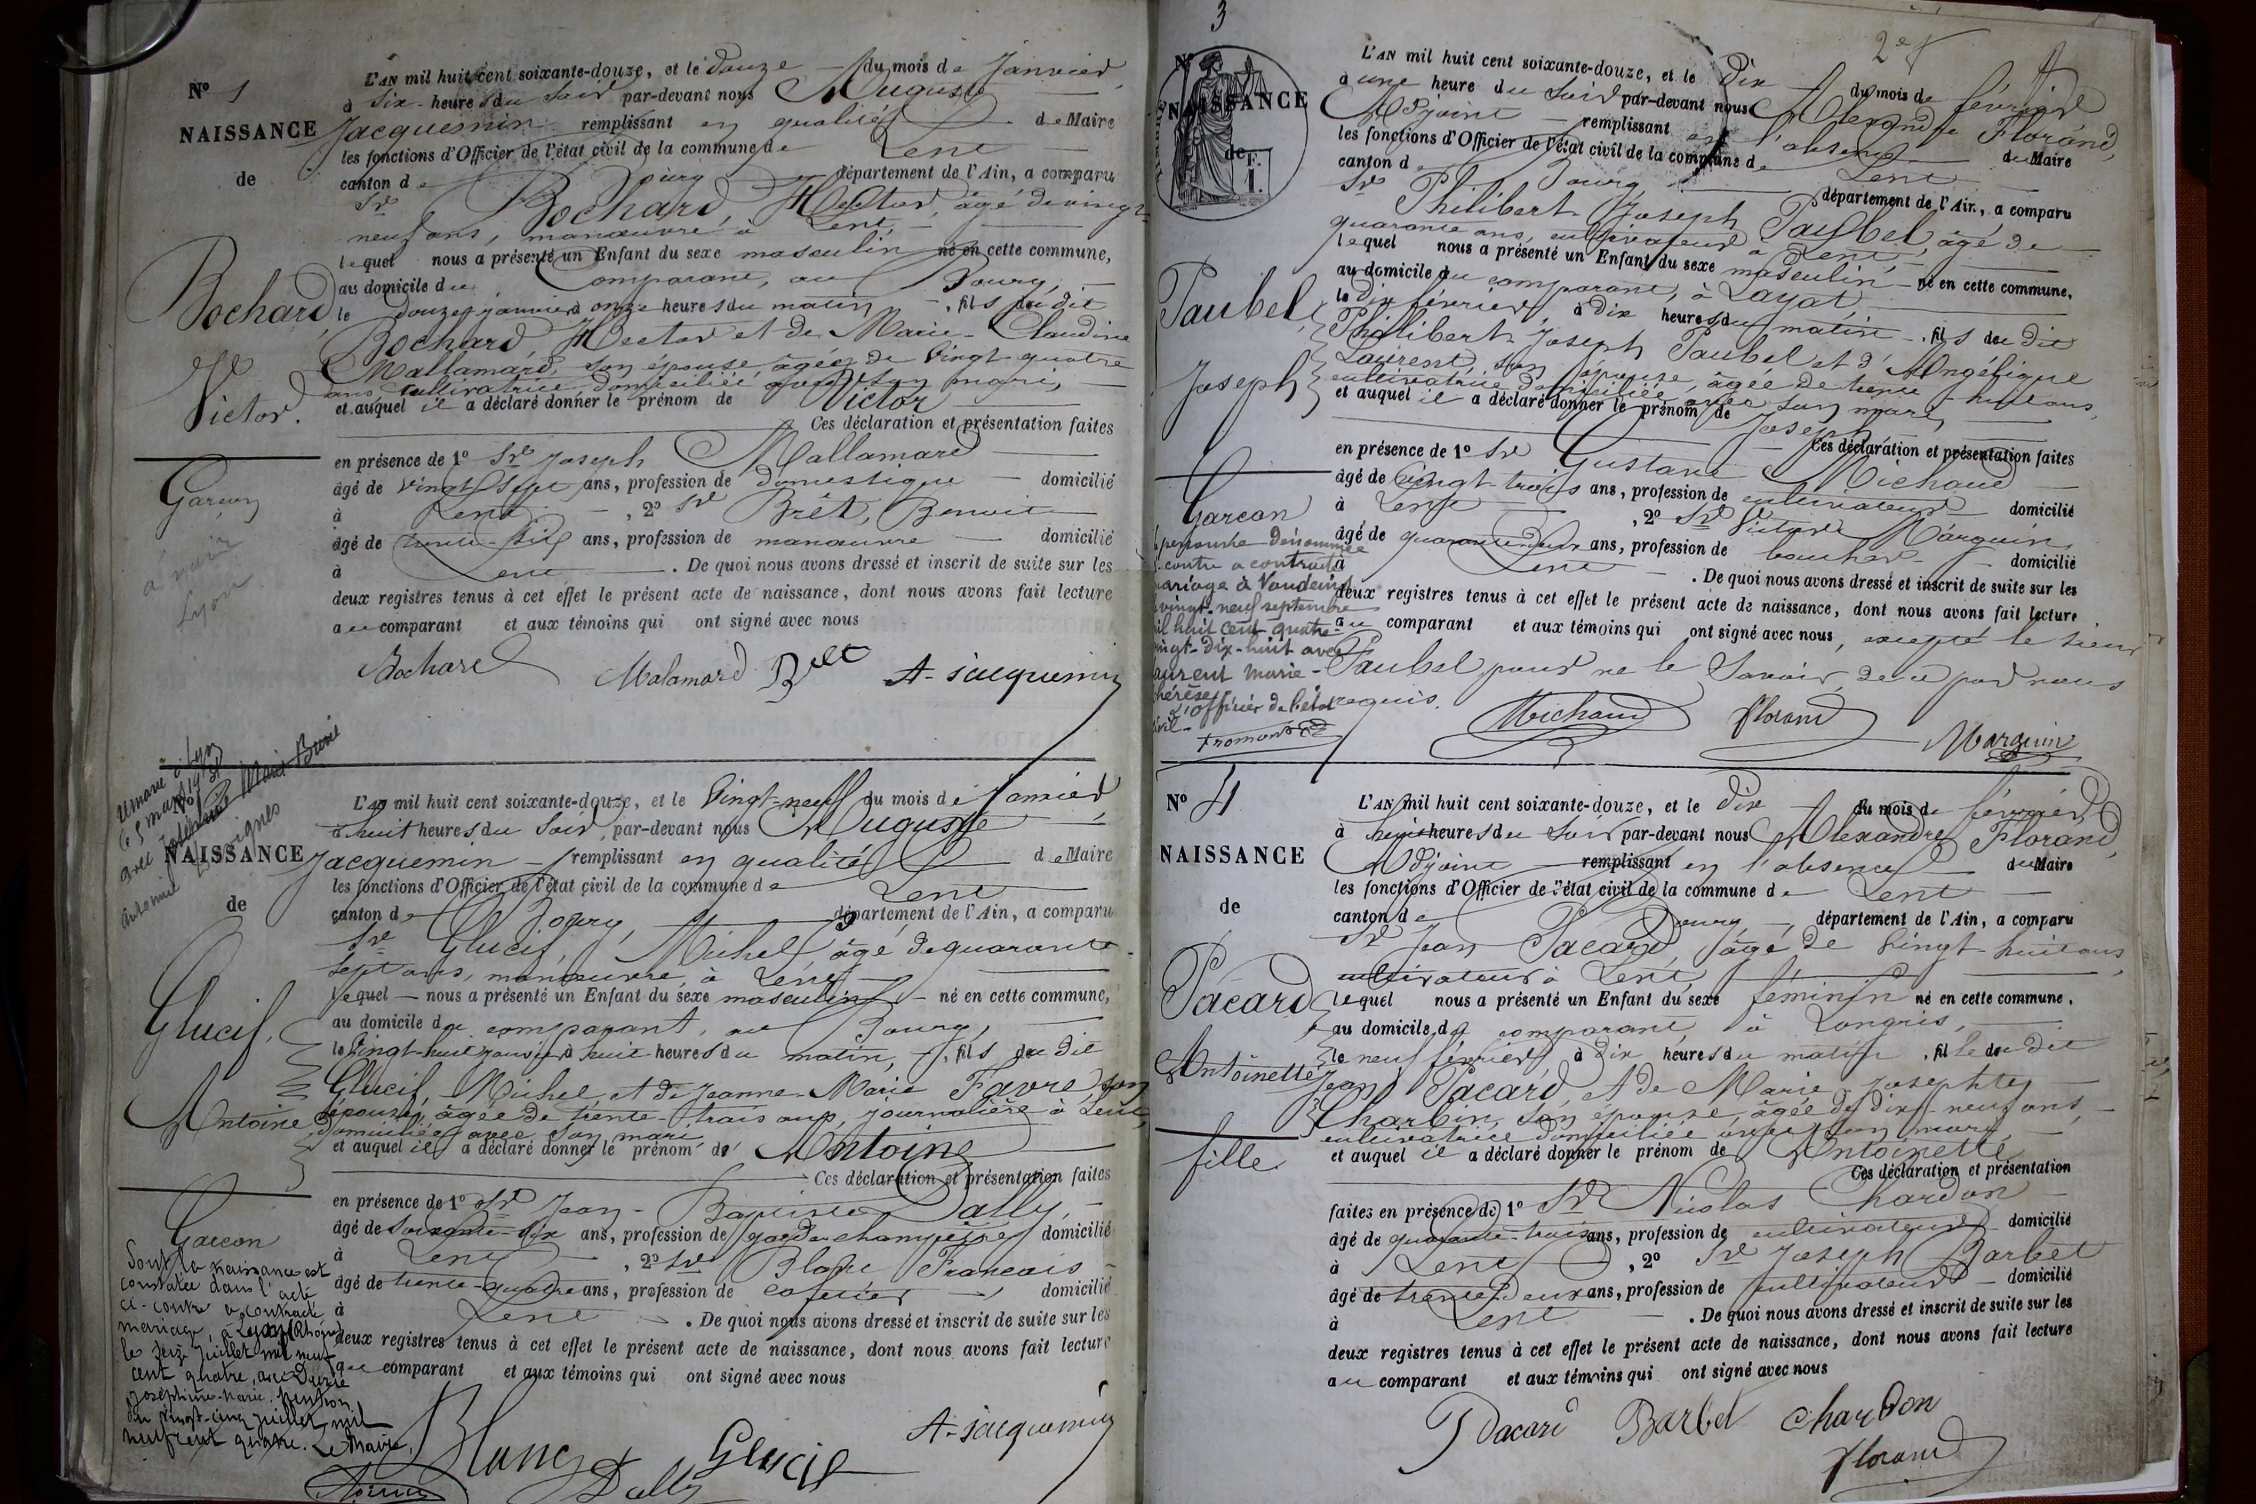 Nº 1
NAISSANCE
de
Bochard,
Victor.
Garçon
à marié
Lyon
L'AN mil huit cent soixante-douze, et le douze du mois de Janvier
à six heures du soir par-devant nous Auguste
Jacquemin remplissant en qualité de Maire
les fonctions d'Officier de l'état civil de la commune de Lent
canton de Bourg département de l'Ain, a comparu
Sr Bochard, Hector, âgé de vingt
neuf ans, manœuvre à Lent,
lequel nous a présenté un Enfant du sexe masculin né en cette commune,
au domicile du comparant, au Bourg,
le douze janvier à onze heures du matin, fils du dit
Bochard Hector et de Marie-Claudine
Mallamard, son épouse, âgée de vingt-quatre
ans cultivatrice domiciliée avec son mari,
et auquel il a déclaré donner le prénom de Victor
Ces déclaration et présentation faites
en présence de 1º Sr Joseph Mallamard
âgé de vingt-sept ans, profession de domestique domicilié
à Lent, 2º Sr Brêt, Benoit
âgé de trente-six ans, profession de manœuvre domicilié
à Lent. De quoi nous avons dressé et inscrit de suite sur les
deux registres tenus à cet effet le présent acte de naissance, dont nous avons fait lecture
au comparant et aux témoins qui ont signé avec nous
Bochard Malamard Bret A. Jacquemin
NAISSANCE
de
Glucif,
Antoine
Garçon
Dont la naissance est
constatée dans l'acte
ci-contre a contracté
mariage, à Lyon (Rhône)
le seize juillet mil neuf
cent quatre, avec
Joséphine-Marie. Mention
du vingt-cinq juillet mil
neuf cent quatre. Le Maire,
L'AN mil huit cent soixante-douze, et le vingt-neuf du mois de janvier
à huit heures du soir, par-devant nous Auguste
Jacquemin remplissant en qualité de Maire
les fonctions d'Officier de l'état civil de la commune de Lent
canton de Bourg, département de l'Ain, a comparu
Sr Glucif, Michel, âgé de quarante
sept ans, manœuvre, à Lent
lequel nous a présenté un Enfant du sexe masculin né en cette commune,
au domicile du comparant, au Bourg,
le vingt-huit janvier à huit heures du matin, fils du dit
Glucif, Michel, et de Jeanne-Marie Favre son
épouse, âgée de trente-trois ans, journalière à Lent,
domiciliée avec son mari,
et auquel il a déclaré donner le prénom de Antoine
Ces déclaration et présentation faites
en présence de 1º Sr Jean-Baptiste Dally,
âgé de soixante-six ans, profession de garde champêtre domicilié
à Lent, 2º Sr Blanc François
âgé de trente-quatre ans, profession de cafetier, domicilié
à Lent. De quoi nous avons dressé et inscrit de suite sur les
deux registres tenus à cet effet le présent acte de naissance, dont nous avons fait lecture
au comparant et aux témoins qui ont signé avec nous
A. Jacquemin
Blanc Dally Glucif
3
2e f
Nº
NAISSANCE
de
F.
1.
Paubel,
Joseph
Garçon
personne dénommée
ci-contre a contracté
mariage à
vingt-neuf septembre
mil huit cent quatre-
vingt-dix-huit avec
Laurent Marie-
Thérèse
L'officier de l'état
civil
L'AN mil huit cent soixante-douze, et le dix du mois de février
à une heure du soir par-devant nous Alexandre Florand,
Adjoint remplissant en l'absence du Maire
les fonctions d'Officier de l'état civil de la commune de Lent
canton de Bourg département de l'Ain, a comparu
Sr Philibert Joseph Paubel, âgé de
quarante ans, cultivateur à Lent,
lequel nous a présenté un Enfant du sexe masculin né en cette commune,
au domicile du comparant, à Layat,
le dix février, à dix heures du matin, fils du dit
Philibert Joseph Paubel et d'Angélique
Laurent, son épouse, âgée de trente-huit ans,
cultivatrice domiciliée avec son mari,
et auquel il a déclaré donner le prénom de Joseph
Ces déclaration et présentation faites
en présence de 1º Sr Gustave Michaud
âgé de vingt-trois ans, profession de cultivateur domicilié
à Lent, 2º Sr Victor Marguin
âgé de quarante-deux ans, profession de boucher domicilié
à Lent. De quoi nous avons dressé et inscrit de suite sur les
deux registres tenus à cet effet le présent acte de naissance, dont nous avons fait lecture
au comparant et aux témoins qui ont signé avec nous, excepté le sieur
Paubel, pour ne le savoir, de ce par nous
requis.
Michaud Florand Marguin
Nº 4
NAISSANCE
de
Pacard
Antoinette
fille
L'AN mil huit cent soixante-douze, et le dix du mois de février
à huit heures du soir par-devant nous Alexandre Florand,
Adjoint remplissant en l'absence du Maire
les fonctions d'Officier de l'état civil de la commune de Lent
canton de Bourg, département de l'Ain, a comparu
Sr Jean Pacard âgé de vingt-huit ans
cultivateur à Lent,
lequel nous a présenté un Enfant du sexe féminin né en cette commune,
au domicile du comparant à Longris,
le neuf février à dix heures du matin, fille du dit
Jean Pacard, et de Marie-Josephte
Charbin, son épouse, âgée de dix-neuf ans,
cultivatrice domiciliée avec son mari,
et auquel il a déclaré donner le prénom de Antoinette
Ces déclaration et présentation
faites en présence de 1º Sr Nicolas Chardon
âgé de quarante-trois ans, profession de cultivateur domicilié
à Lent, 2º Sr Joseph Barbet
âgé de trente-deux ans, profession de cultivateur domicilié
à Lent. De quoi nous avons dressé et inscrit de suite sur les
deux registres tenus à cet effet le présent acte de naissance, dont nous avons fait lecture
au comparant et aux témoins qui ont signé avec nous
Pacard Barbet Chardon
Florand